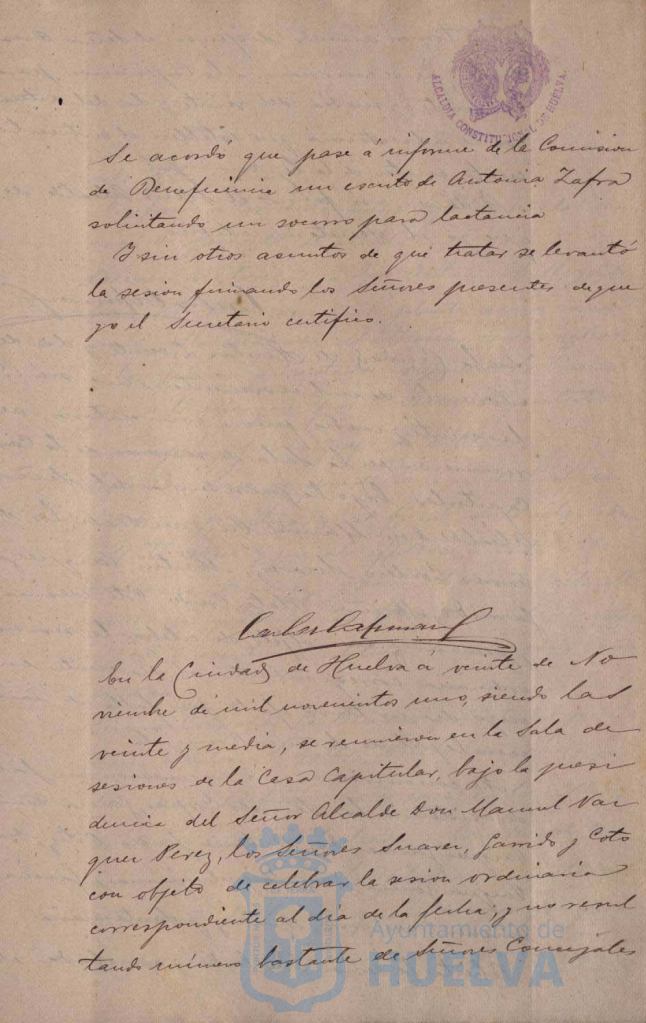 ALCALDIA CONSTITUCIONAL DE HUELVA.
Se acordó que pase á informe de la Comision
de Beneficencia un escrito de Antonia Zafra
solicitando un socorro para lactancia
Y sin otros asuntos de que tratar se levantó
la sesion firmando los Señores presentes de que
yo el Secretario certifico.
Carlos
En la Ciudad de Huelva á veinte de No
viembre de mil novecientos uno, siendo las
veinte y media, se reunieron en la Sala de
sesiones de la Casa Capitular, bajo la presi
dencia del Señor Alcalde Don Manuel Vaz
quez Perez, los Señores Suarez, Garrido y Coto
con objeto de celebrar la sesion ordinaria
correspondiente al dia de la fecha; y no resul
tando número bastante de Señores Concejales
Ayuntamiento de
HUELVA